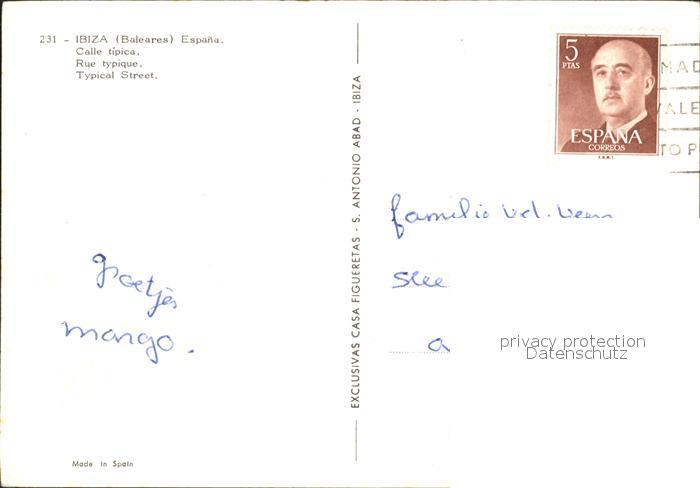 231 - IBIZA (Baleares) España.
Calle típica.
Rue typique.
Typical Street.
5
PTAS
ESPAÑA
CORREOS
F.N.M.T.
MAD
VALE
TO P
EXCLUSIVAS CASA FIGUERETAS - S. ANTONIO ABAD - IBIZA
familie v.d. Veen
a
privacy protection
Datenschutz
Groetjes
mango.
Made in Spain